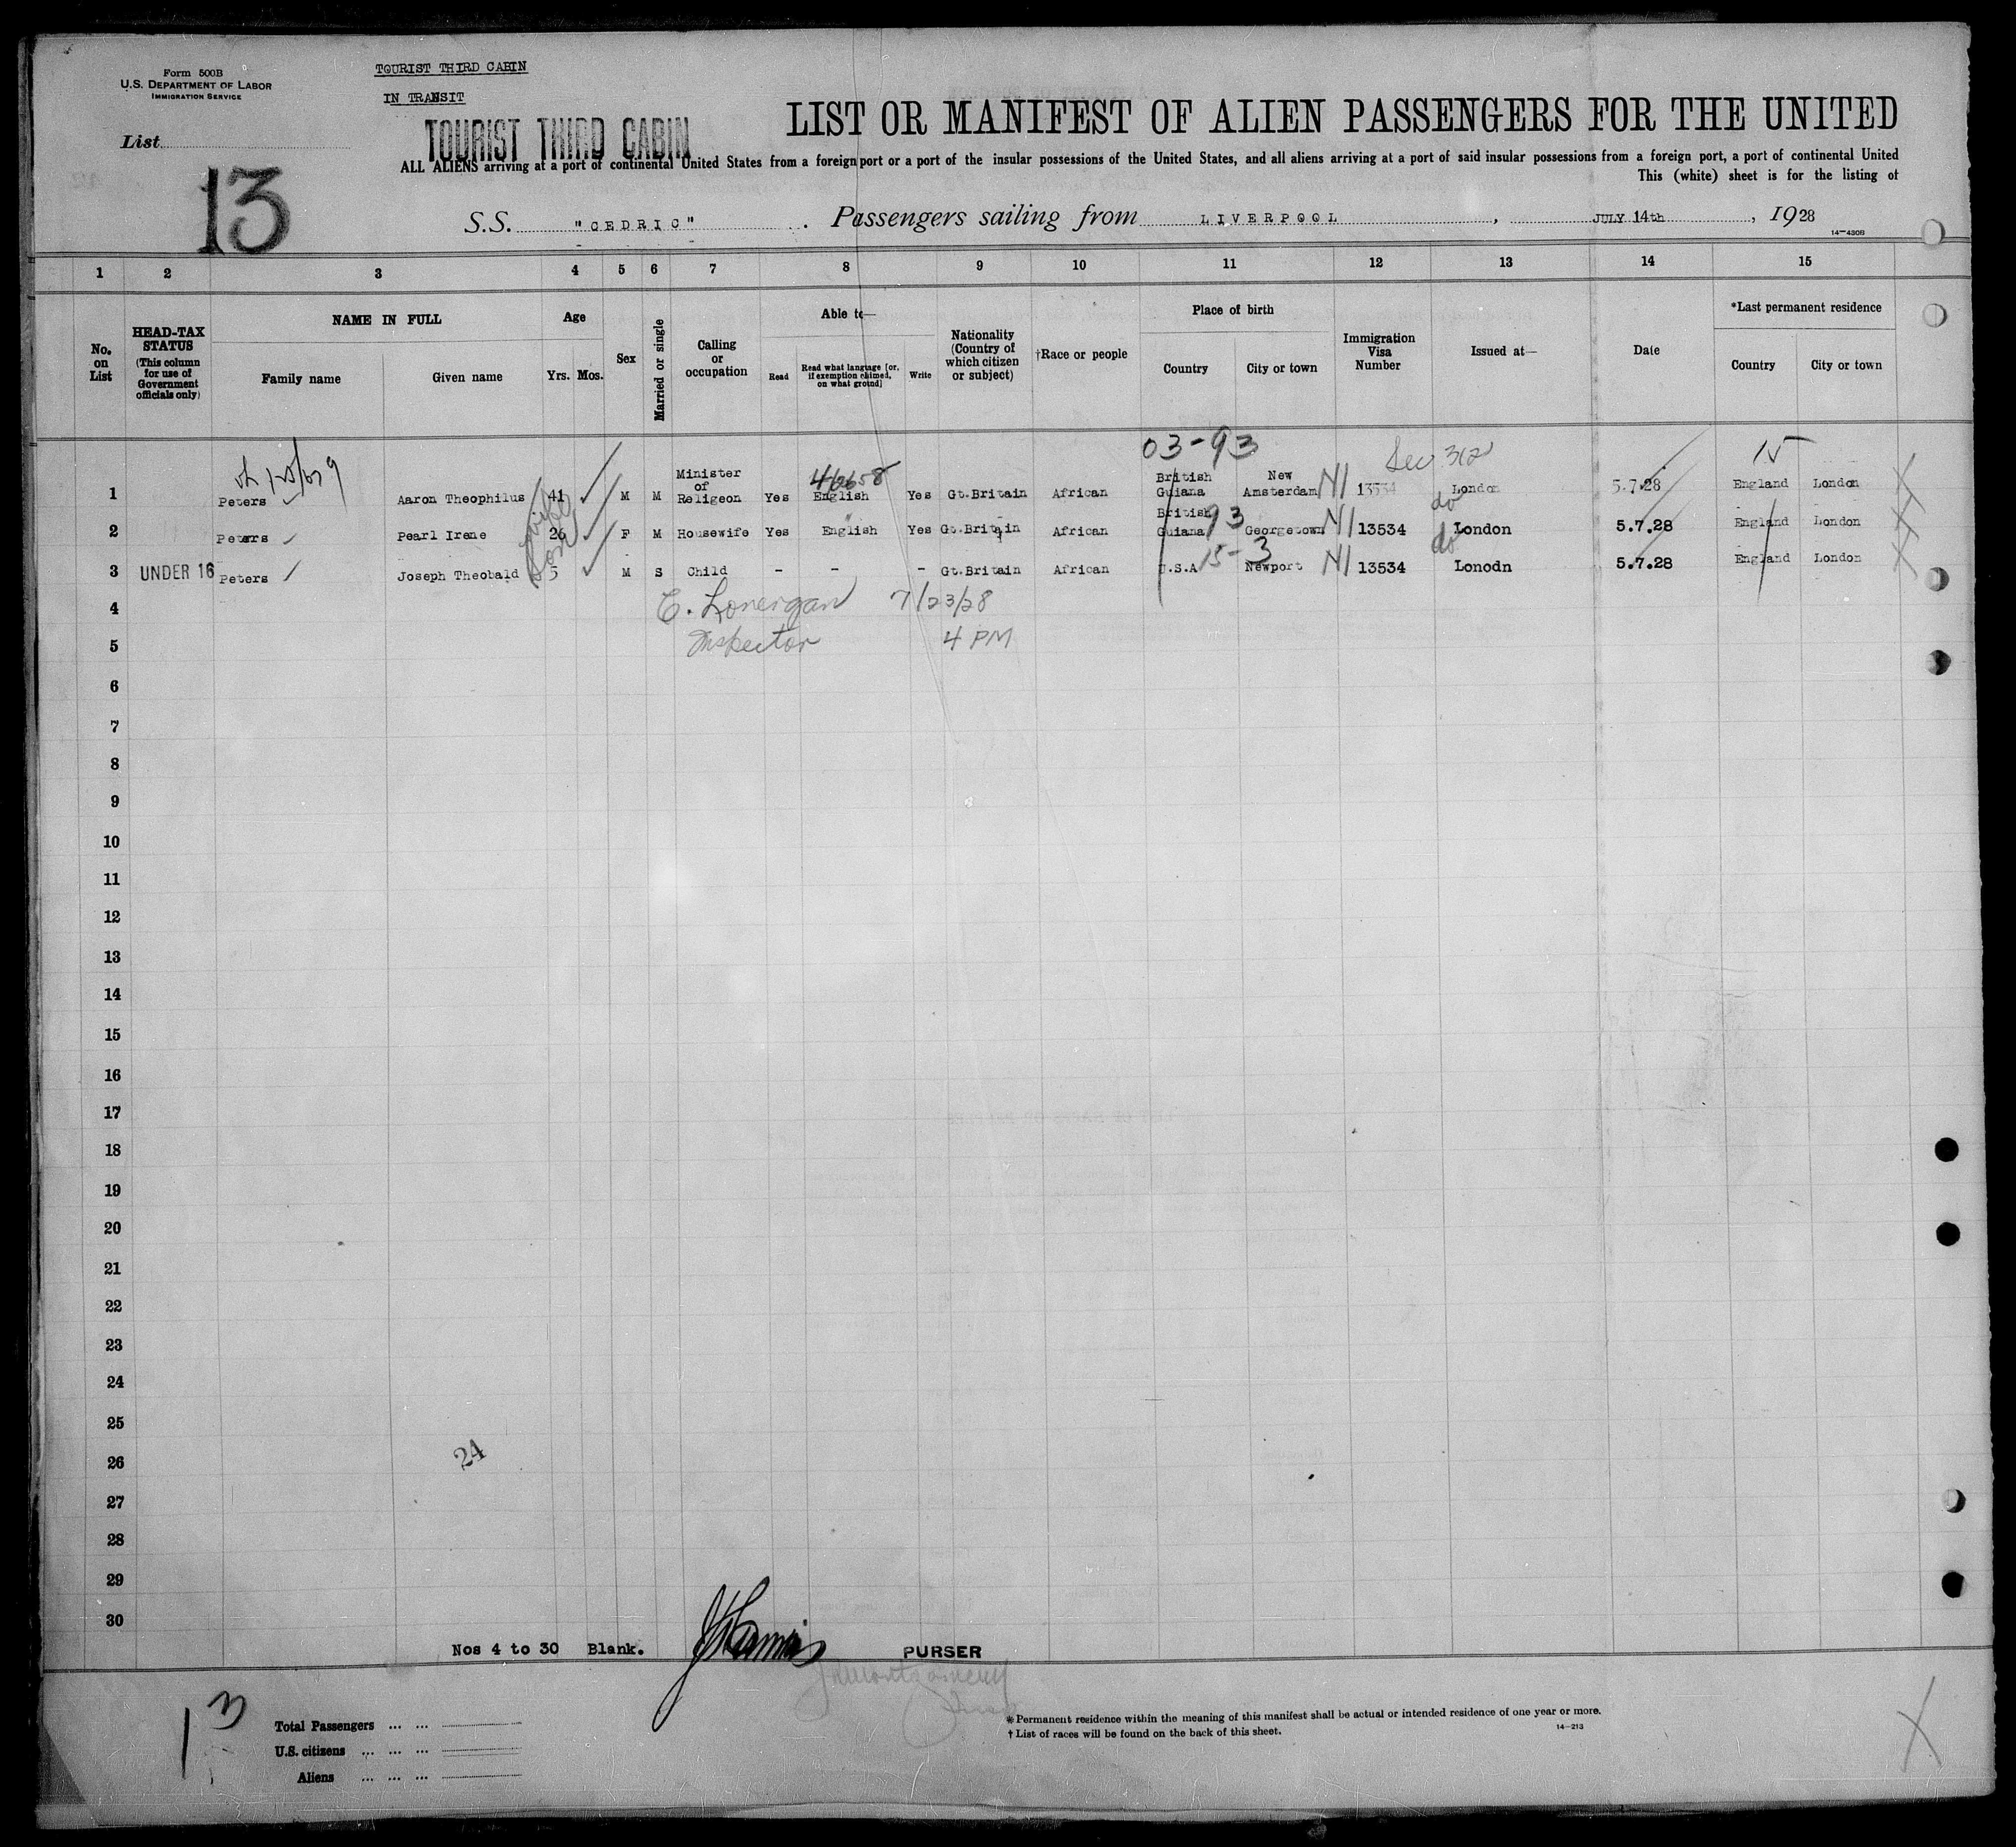 Form 500B
U.S. DEPARTMENT OF LABOR
IMMIGRATION SERVICE
TOURIST THIRD CABIN
IN TRANSIT
List
13
TOURIST THIRD CABIN
LIST OR MANIFEST OF ALIEN PASSENGERS FOR THE UNITED
ALL ALIENS arriving at a port of continental United States from a foreign port or a port of the insular possessions of the United States, and all aliens arriving at a port of said insular possessions from a foreign port, a port of continental United
This (white) sheet is for the listing of
S.S. "CEDRIC" . Passengers sailing from LIVERPOOL , JULY 14th , 1928
14-430B
1 2 3 4 5 6 7 8 9 10 11 12 13 14 15
No. on List
HEAD-TAX STATUS
(This column for use of Government officials only)
NAME IN FULL
Family name
Given name
Age
Yrs. Mos.
Sex
Married or single
Calling or occupation
Able to—
Read
Read what language [or, if exemption claimed, on what ground]
Write
Nationality (Country of which citizen or subject)
†Race or people
Place of birth
Country
City or town
Immigration Visa Number
Issued at—
Date
*Last permanent residence
Country
City or town
03-93
15
46658
1 Peters Aaron Theophilus 41 M M Minister of Religeon Yes English Yes Gt.Britain African British Guiana New Amsterdam NI 13534 London 5.7.28 England London
wife
93
do
2 Peters Pearl Irene 26 F M Housewife Yes English Yes Gt.Britain African British Guiana Georgetown NI 13534 London 5.7.28 England London
Son
15-3
do
3 UNDER 16 Peters Joseph Theobald 5 M S Child - - - Gt.Britain African U.S.A Newport NI 13534 Lonodn 5.7.28 England London
E. Lonergan 7/23/28
Inspector 4 PM
4
5
6
7
8
9
10
11
12
13
14
15
16
17
18
19
20
21
22
23
24
25
26
24
27
28
29
30
Nos 4 to 30 Blank. PURSER
13
Total Passengers ... ...
U.S. citizens ... ... ...
Aliens ... ... ...
* Permanent residence within the meaning of this manifest shall be actual or intended residence of one year or more.
† List of races will be found on the back of this sheet.
14-213